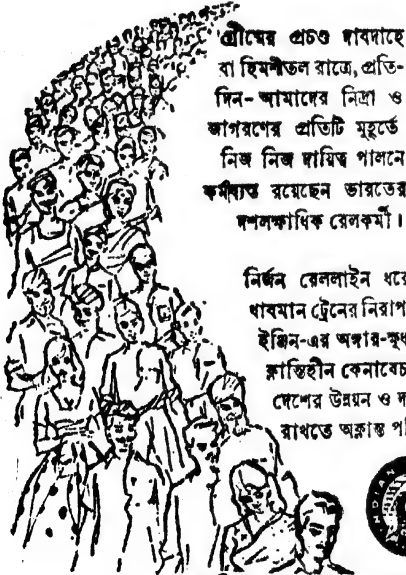 গ্রীষ্মের প্রচণ্ড দাবদাহে
বা হিমশীতল রাত্রে, প্রতি-
দিন-আমাদের নিদ্রা ও
জাগরণের প্রতিটি মুহূর্তে
নিজ নিজ দায়িত্ব পালনে
কর্মব্যস্ত রয়েছেন ভারতের
দশলক্ষাধিক রেলকর্মী।
নির্জন রেললাইন ধরে
ধাবমান ট্রেনের নিরাপ
ইঞ্জিন-এর অঙ্গার-ক্ষুধ
ক্লান্তিহীন কেনাবেচ
দেশের উন্নয়ন ও দ
রাখতে অক্লান্ত প